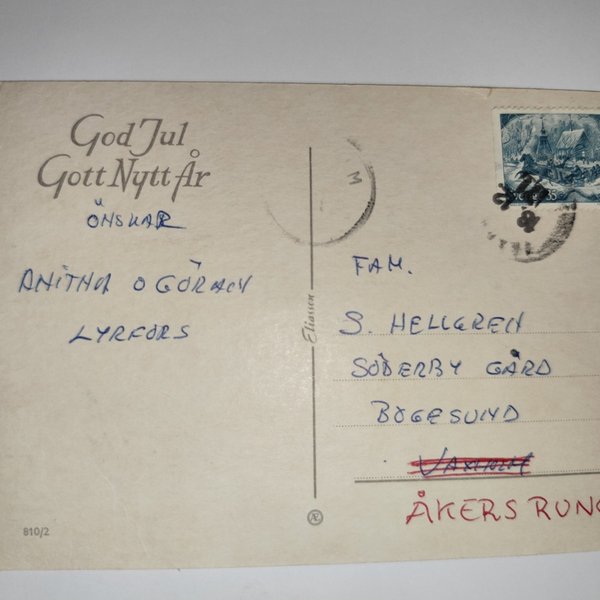 God Jul
Gott Nytt År
ÖNSKAR
ANITHA O GÖRAN
LYRFORS
810/2
Eliasson
Æ
M
35
FAM.
S. HELLGREN
SÖDERBY GÅRD
BOGESUND
ÅKERS RUNG